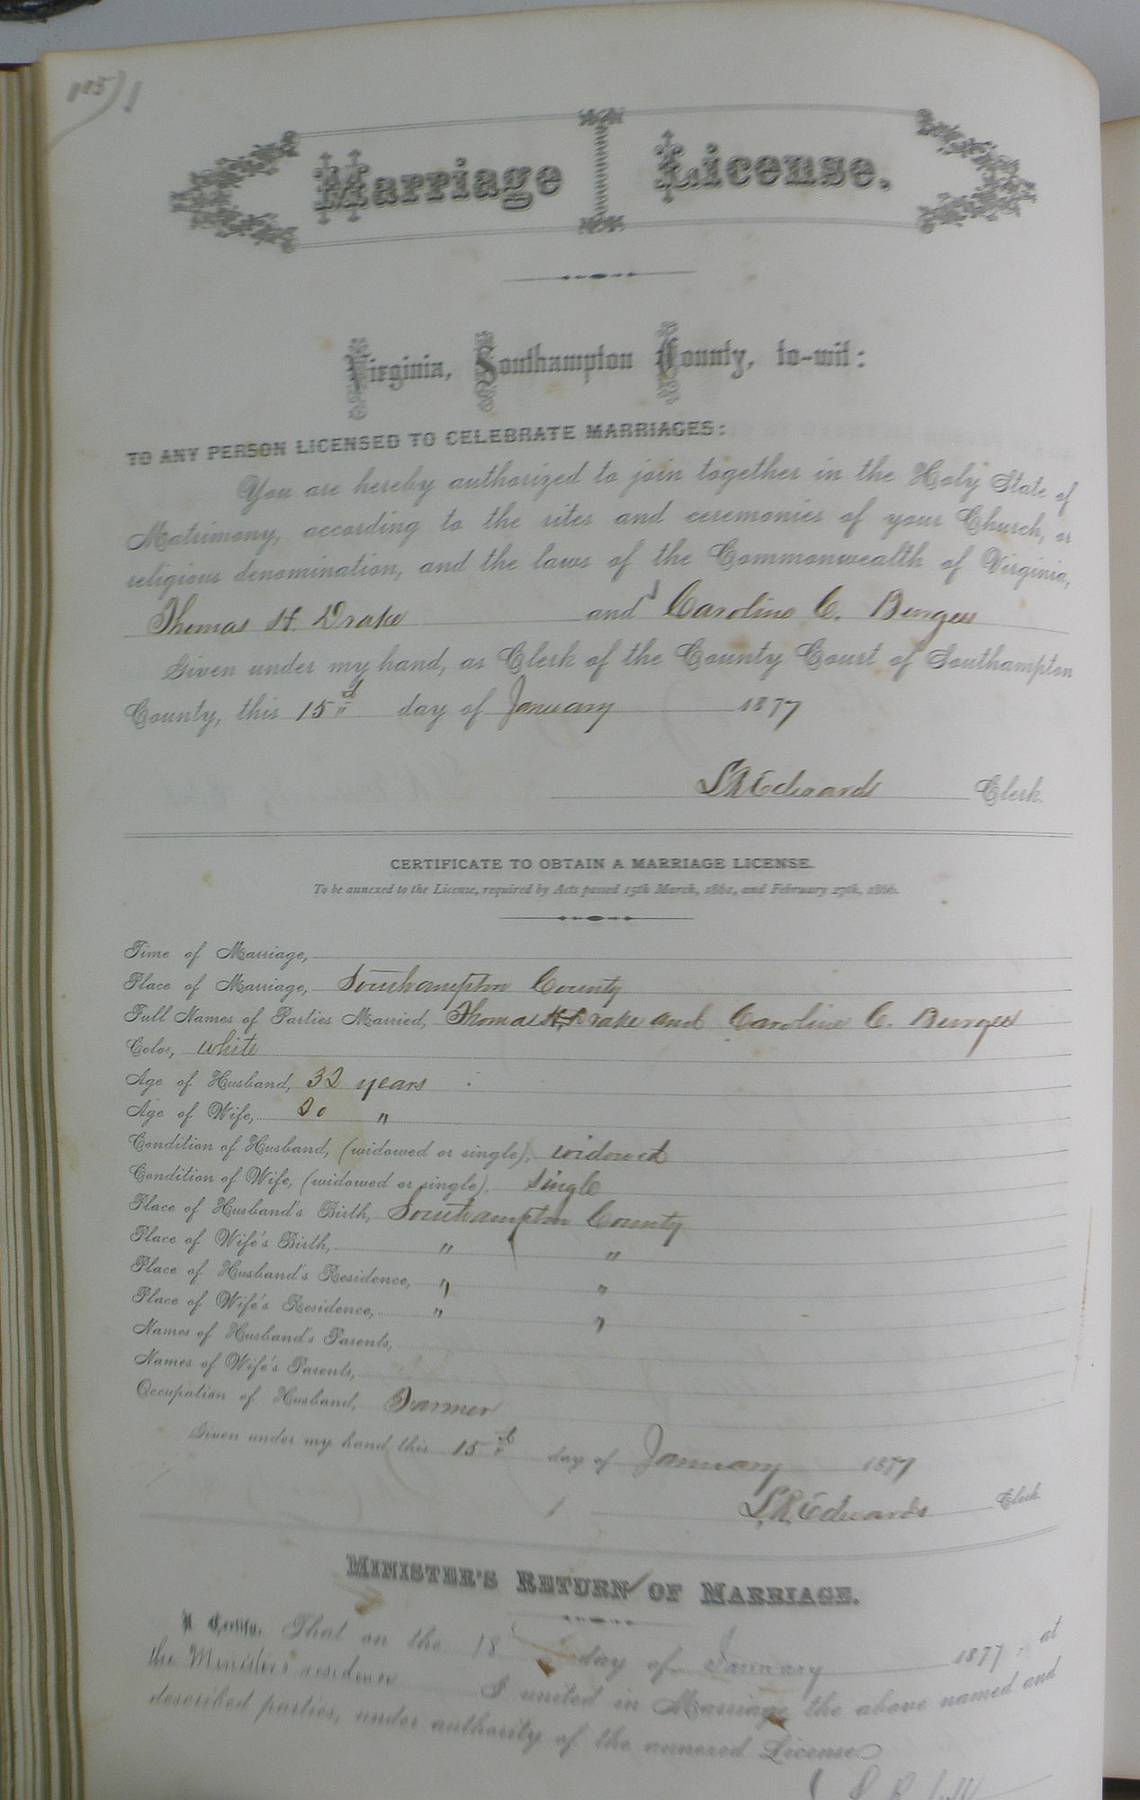 Marriage License.
Virginia, Southampton County, to-wit:
TO ANY PERSON LICENSED TO CELEBRATE MARRIAGES:
You are hereby authorized to join together in the Holy State of
Matrimony, according to the rites and ceremonies of your Church, or
religious denomination, and the laws of the Commonwealth of Virginia,
Thomas H. Drake and Caroline C. Burgess
Given under my hand, as Clerk of the County Court of Southampton
County, this 15th day of January 1877
L R Edwards Clerk.
CERTIFICATE TO OBTAIN A MARRIAGE LICENSE.
To be annexed to the License, required by Acts passed 15th March, 1861, and February 27th, 1866.
Time of Marriage,
Place of Marriage, Southampton County
Full Names of Parties Married, Thomas H. Drake and Caroline C. Burgess
Color, white
Age of Husband, 32 years
Age of Wife, 20 "
Condition of Husband, (widowed or single), widowed
Condition of Wife, (widowed or single), single
Place of Husband's Birth, Southampton County
Place of Wife's Birth, " "
Place of Husband's Residence, " "
Place of Wife's Residence, " "
Names of Husband's Parents,
Names of Wife's Parents,
Occupation of Husband, Farmer
Given under my hand this 15th day of January 1877
L. R. Edwards Clerk
MINISTER'S RETURN OF MARRIAGE.
I Certify, That on the 18 day of January 1877, at
the Minister's residence I united in Marriage the above named and
described parties, under authority of the annexed License